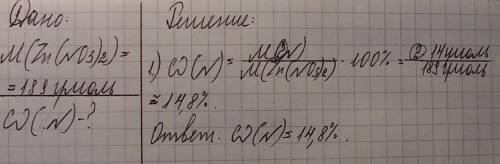 Дано:
M(Zn(NO3)2)=
=189 г/моль
ω(N)-?
Решение:
1) ω(N)= M(N) / M(Zn(NO3)2) · 100% = 2·14г/моль / 189г/моль
≈14,8%.
Ответ: ω(N)=14,8%.